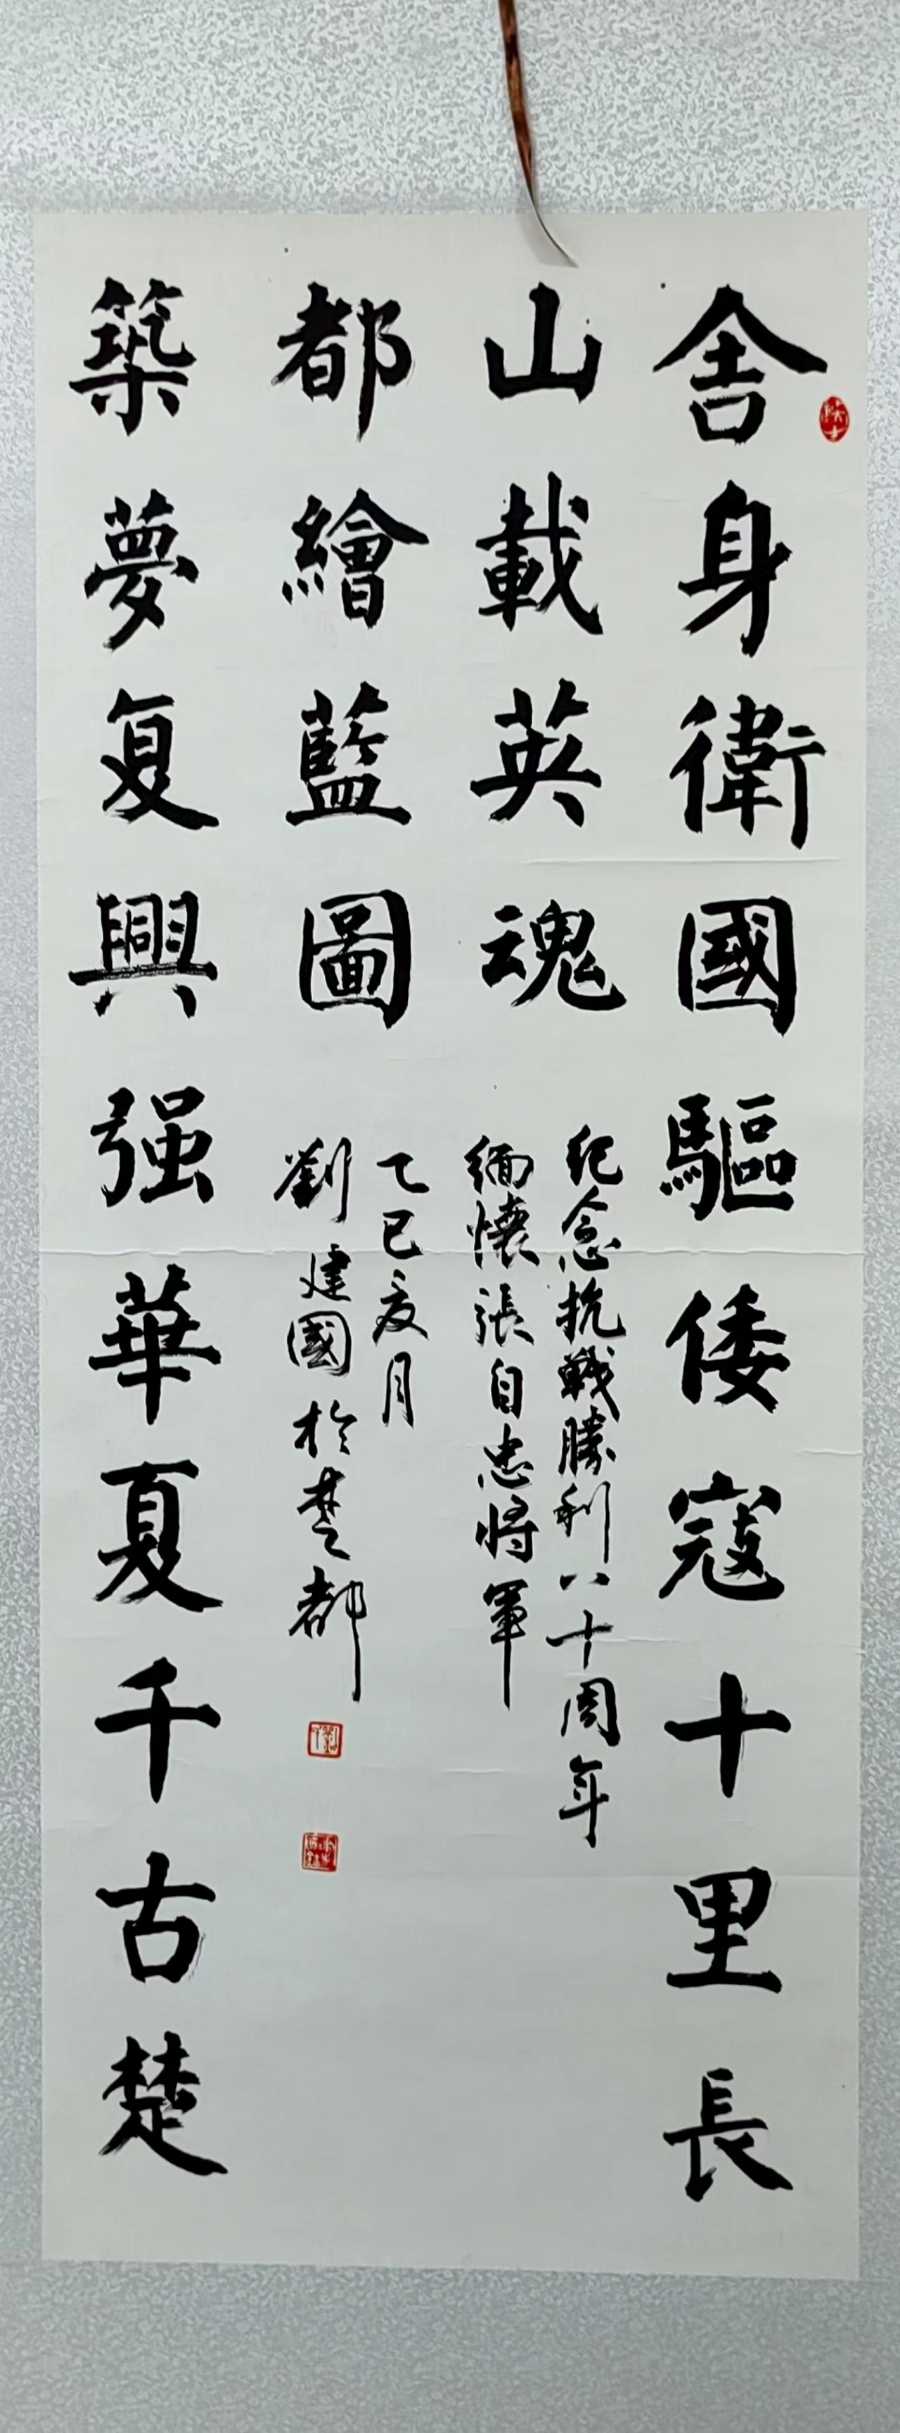 舍身衛國驅倭寇十里長
山載英魂
紀念抗戰勝利八十周年
緬懷張自忠將軍
築夢复興强華夏千古楚
都繪藍圖
乙巳夏月
劉建國於楚都